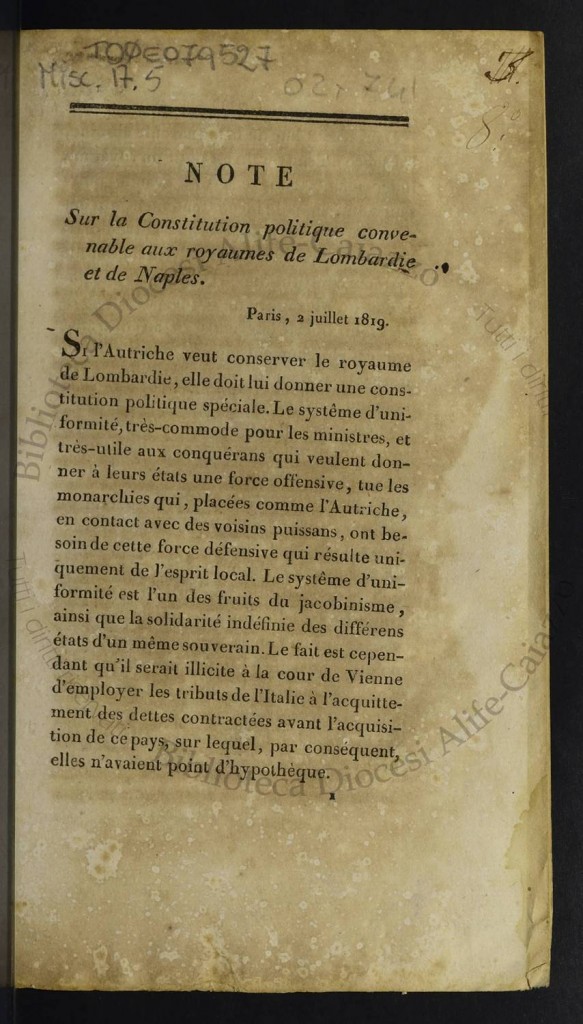 TO0E079527
Misc. 17. 5
NOTE
Sur la Constitution politique conve-
nable aux royaumes de Lombardie
et de Naples.
Paris, 2 juillet 1819.
Si l'Autriche veut conserver le royaume
de Lombardie, elle doit lui donner une cons-
titution politique spéciale. Le systême d'uni-
formité, très-commode pour les ministres, et
très-utile aux conquérans qui veulent don-
ner à leurs états une force offensive, tue les
monarchies qui, placées comme l'Autriche,
en contact avec des voisins puissans, ont be-
soin de cette force défensive qui résulte uni-
quement de l'esprit local. Le systême d'uni-
formité est l'un des fruits du jacobinisme,
ainsi que la solidarité indéfinie des différens
états d'un même souverain. Le fait est cepen-
dant qu'il serait illicite à la cour de Vienne
d'employer les tributs de l'Italie à l'acquitte-
ment des dettes contractées avant l'acquisi-
tion de ce pays, sur lequel, par conséquent,
elles n'avaient point d'hypothèque.
1
Biblioteca Diocesi Alife-Caiazzo
Tutti i diritti
Tutti i diritti
Biblioteca Diocesi Alife-Caiazzo